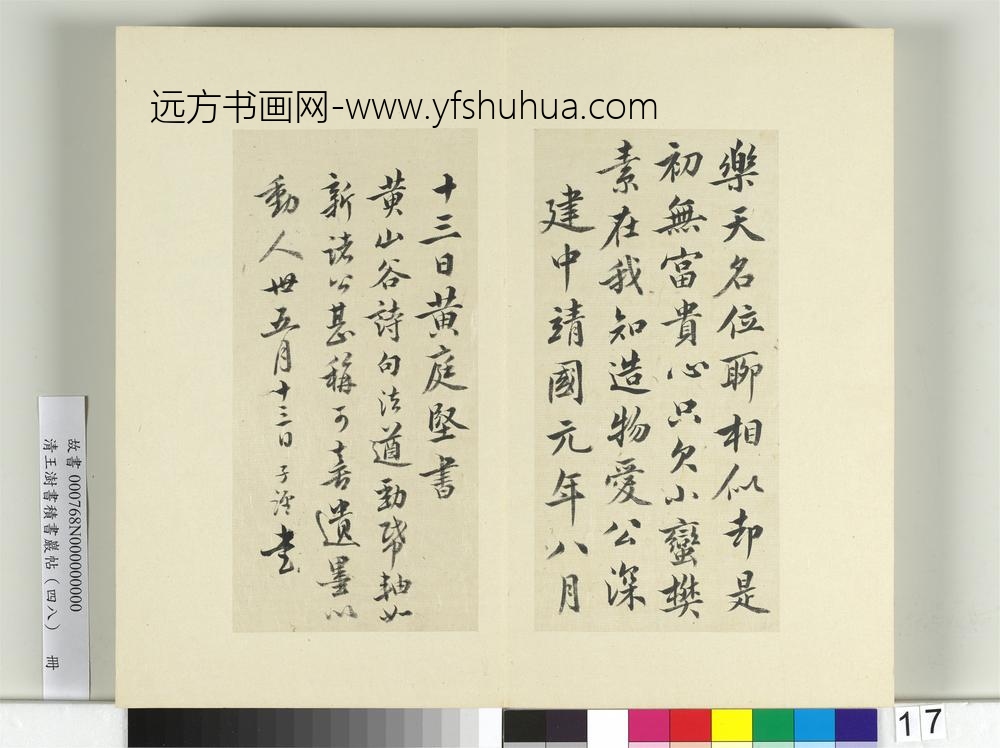 远方书画网-www.yfshuhua.com
樂天名位聊相似却是
初無富貴心只欠小蠻樊
素在我知造物愛公深
建中靖國元年八月
十三日黄庭堅書
黄山谷詩句法遒勁卷軸如
新諸公甚稱可喜遺墨以
動人世五月十三日子 書
故書000768N000000000
清王澍書積書巖帖（四八） 冊
17